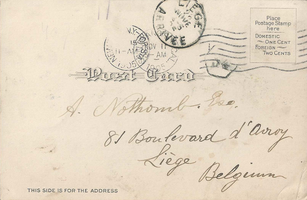 Place
Postage Stamp
Here
DOMESTIC
ONE CENT
FOREIGN
TWO CENTS
LIEGE
ARRIVEE
Post Card
A. Nothomb. Esc.
81 Boulevard d'avroy
Liège
Belgium
THIS SIDE IS FOR THE ADDRESS